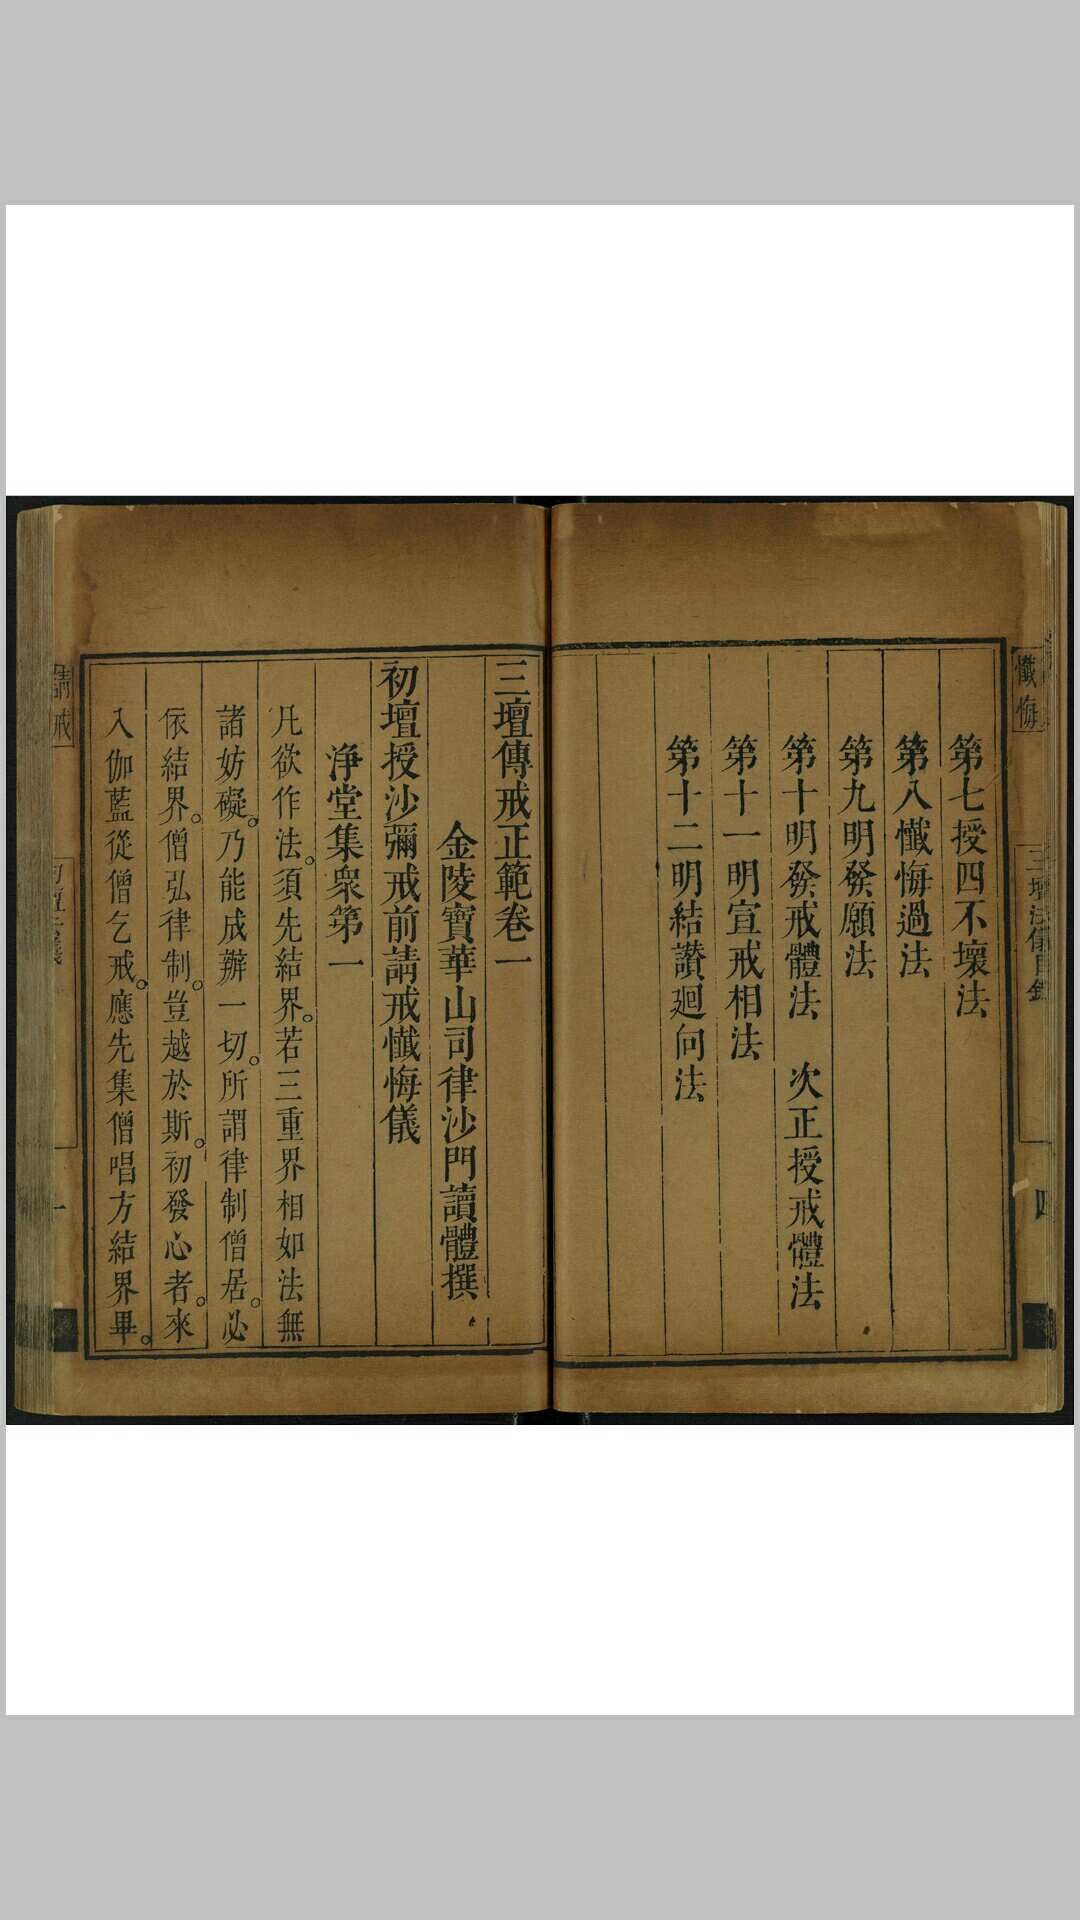 懺悔
三壇法儀目錄
四
第七授四不壞法
第八懺悔過法
第九明發願法
第十明發戒體法　次正授戒體法
第十一明宣戒相法
第十二明結讚廻向法
三壇傳戒正範卷一
金陵寶華山司律沙門讀體撰
初壇授沙彌戒前請戒懺悔儀
淨堂集衆第一
凡欲作法。須先結界。若三重界相如法無
諸妨礙。乃能成辦一切。所謂律制僧居。必
依結界。僧弘律制。豈越於斯。初發心者。來
入伽藍從僧乞戒。應先集僧唱方結界畢。
請戒